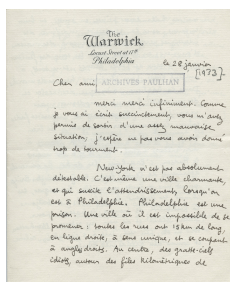 The
Warwick
Locust Street at 17th
Philadelphia
le 28 janvier
[1973]
Cher ami,
ARCHIVES PAULHAN
merci merci infiniment. Comme
je vous ai écrit succinctement, vous m'avez
permis de sortir d'une assez mauvaise
situation, j'espère ne pas vous avoir donné
trop de tourment.
New-York n'est pas absolument
détestable. C'est même une ville charmante,
et qui suscite l'attendrissement, lorsqu'on
est à Philadelphie. Philadelphie est une
prison. Une ville où il est impossible de se
promener, toutes les rues ont 15 km de long,
en ligne droite, à sens unique, et se coupant
à angles droits. Au centre, des gratte-ciels
idiots, autour des files kilométriques de